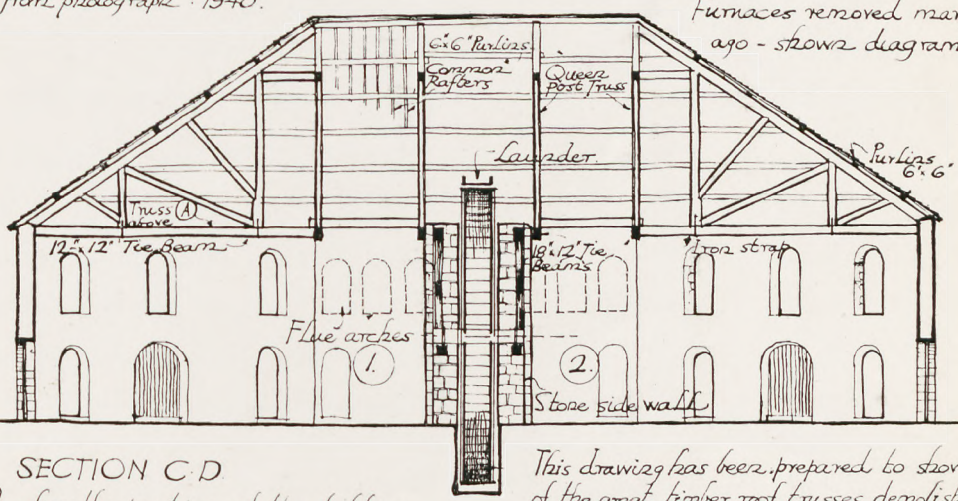 from photograph · 1940.
Furnaces removed
ago - shown
6"x6" Purlins
Common
Rafters
Queen
Post Truss
Launder
Purlins
6"x6"
Truss A
above
12"x12" Tie Beam
18"x12" Tie
Beams
Iron strap
Flue arches
1.
2.
Stone side wall
SECTION C.D
This drawing has been prepared to
of the great timber roof trusses